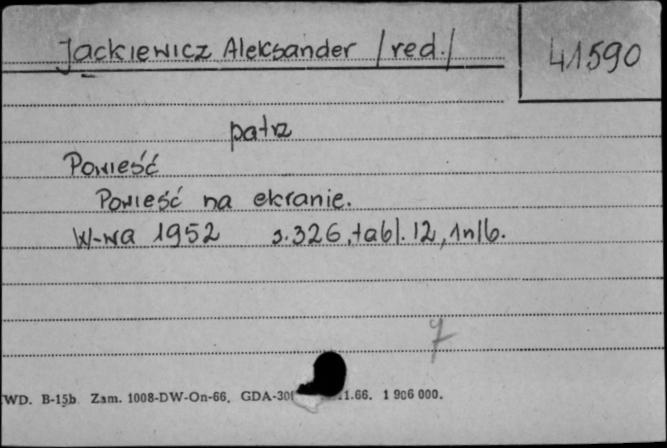 Jackiewicz Aleksander /red./
41590
patrz
Powieść
Powieść na ekranie.
W-wa 1952 s.326, tabl. 12, 1nlb.
7
WD. B-15b Zam. 1008-DW-On-66. GDA-30 1.66. 1 906 000.